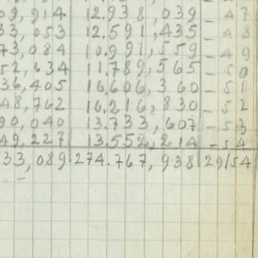 09,914 12.938,039 - 47
33,053 12.591,435 - 48
73,084 10.991,559 - 49
52,634 11.789,565 - 50
36,405 16.606,360 - 51
48,762 16.216,830 - 52
90,040 13.733,607 - 53
49,227 13.552,214 - 54
33,089 274.767,938 29/54